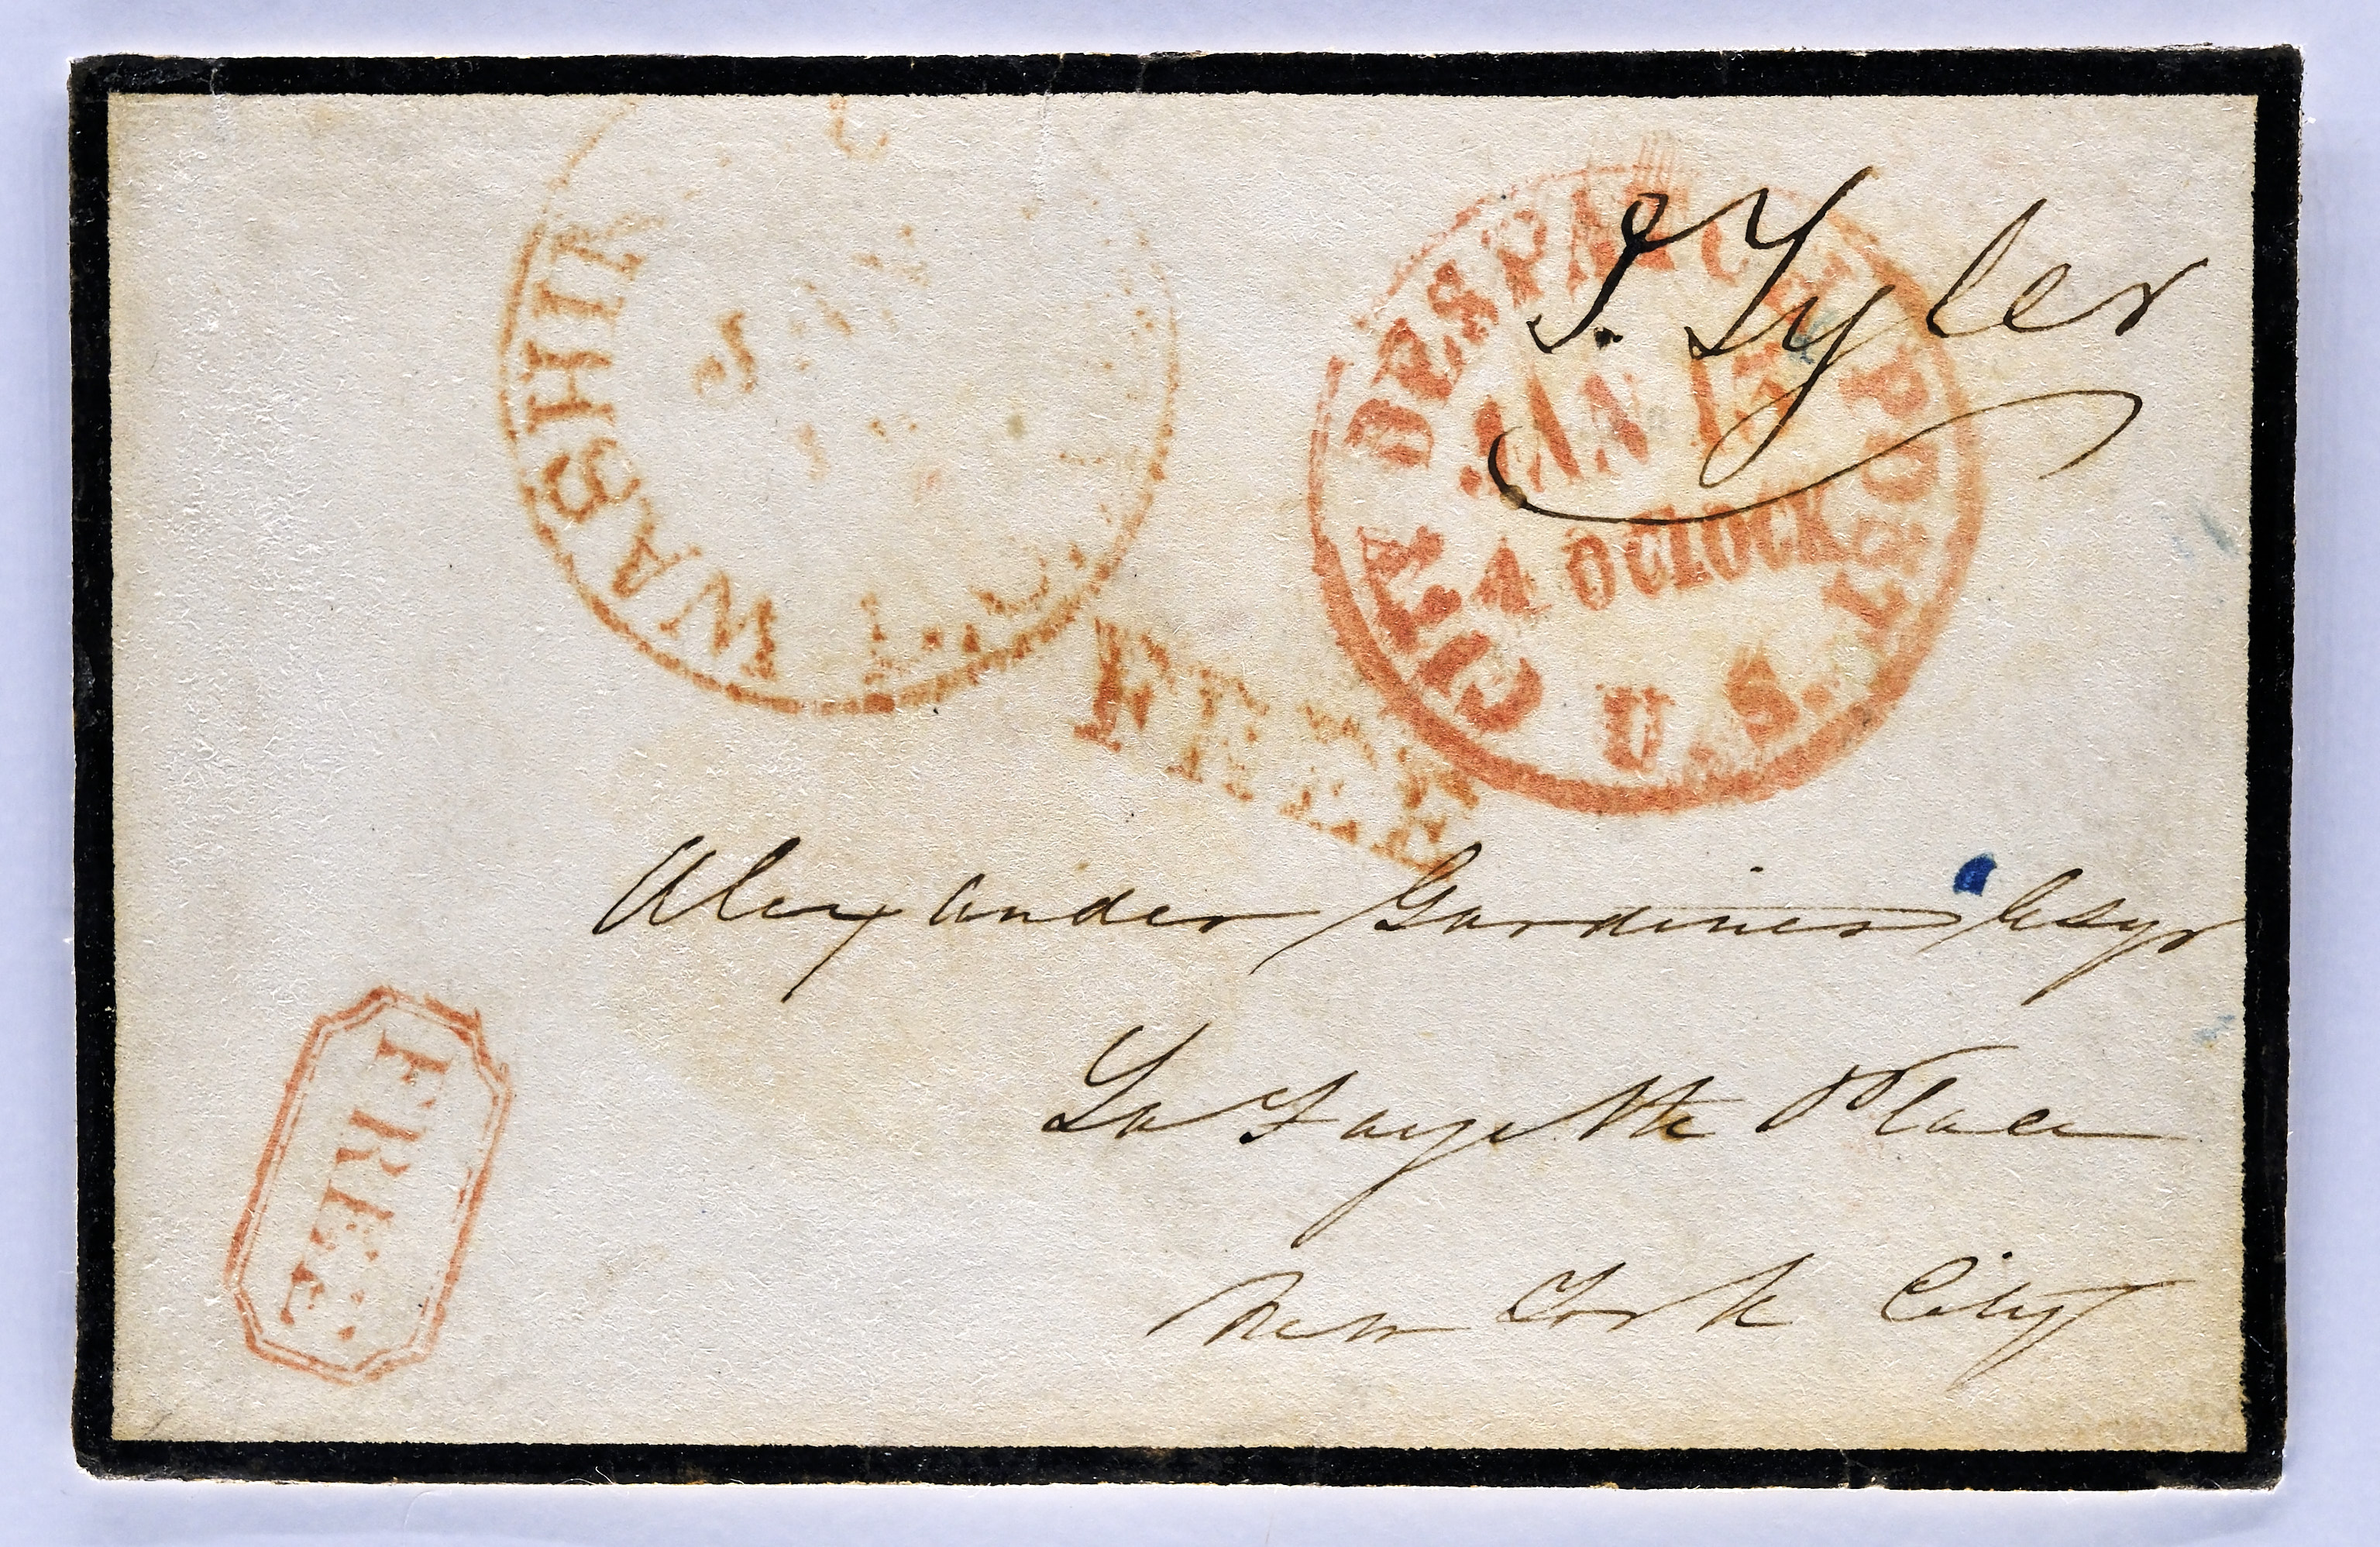 J. Tyler
WASHIN
JAN
CITY DESPATCH POST
JAN 15
4 OCLOCK
U.S.
FREE
Alexander Gardiner Esqr
La Fayette Place
New York City
FREE